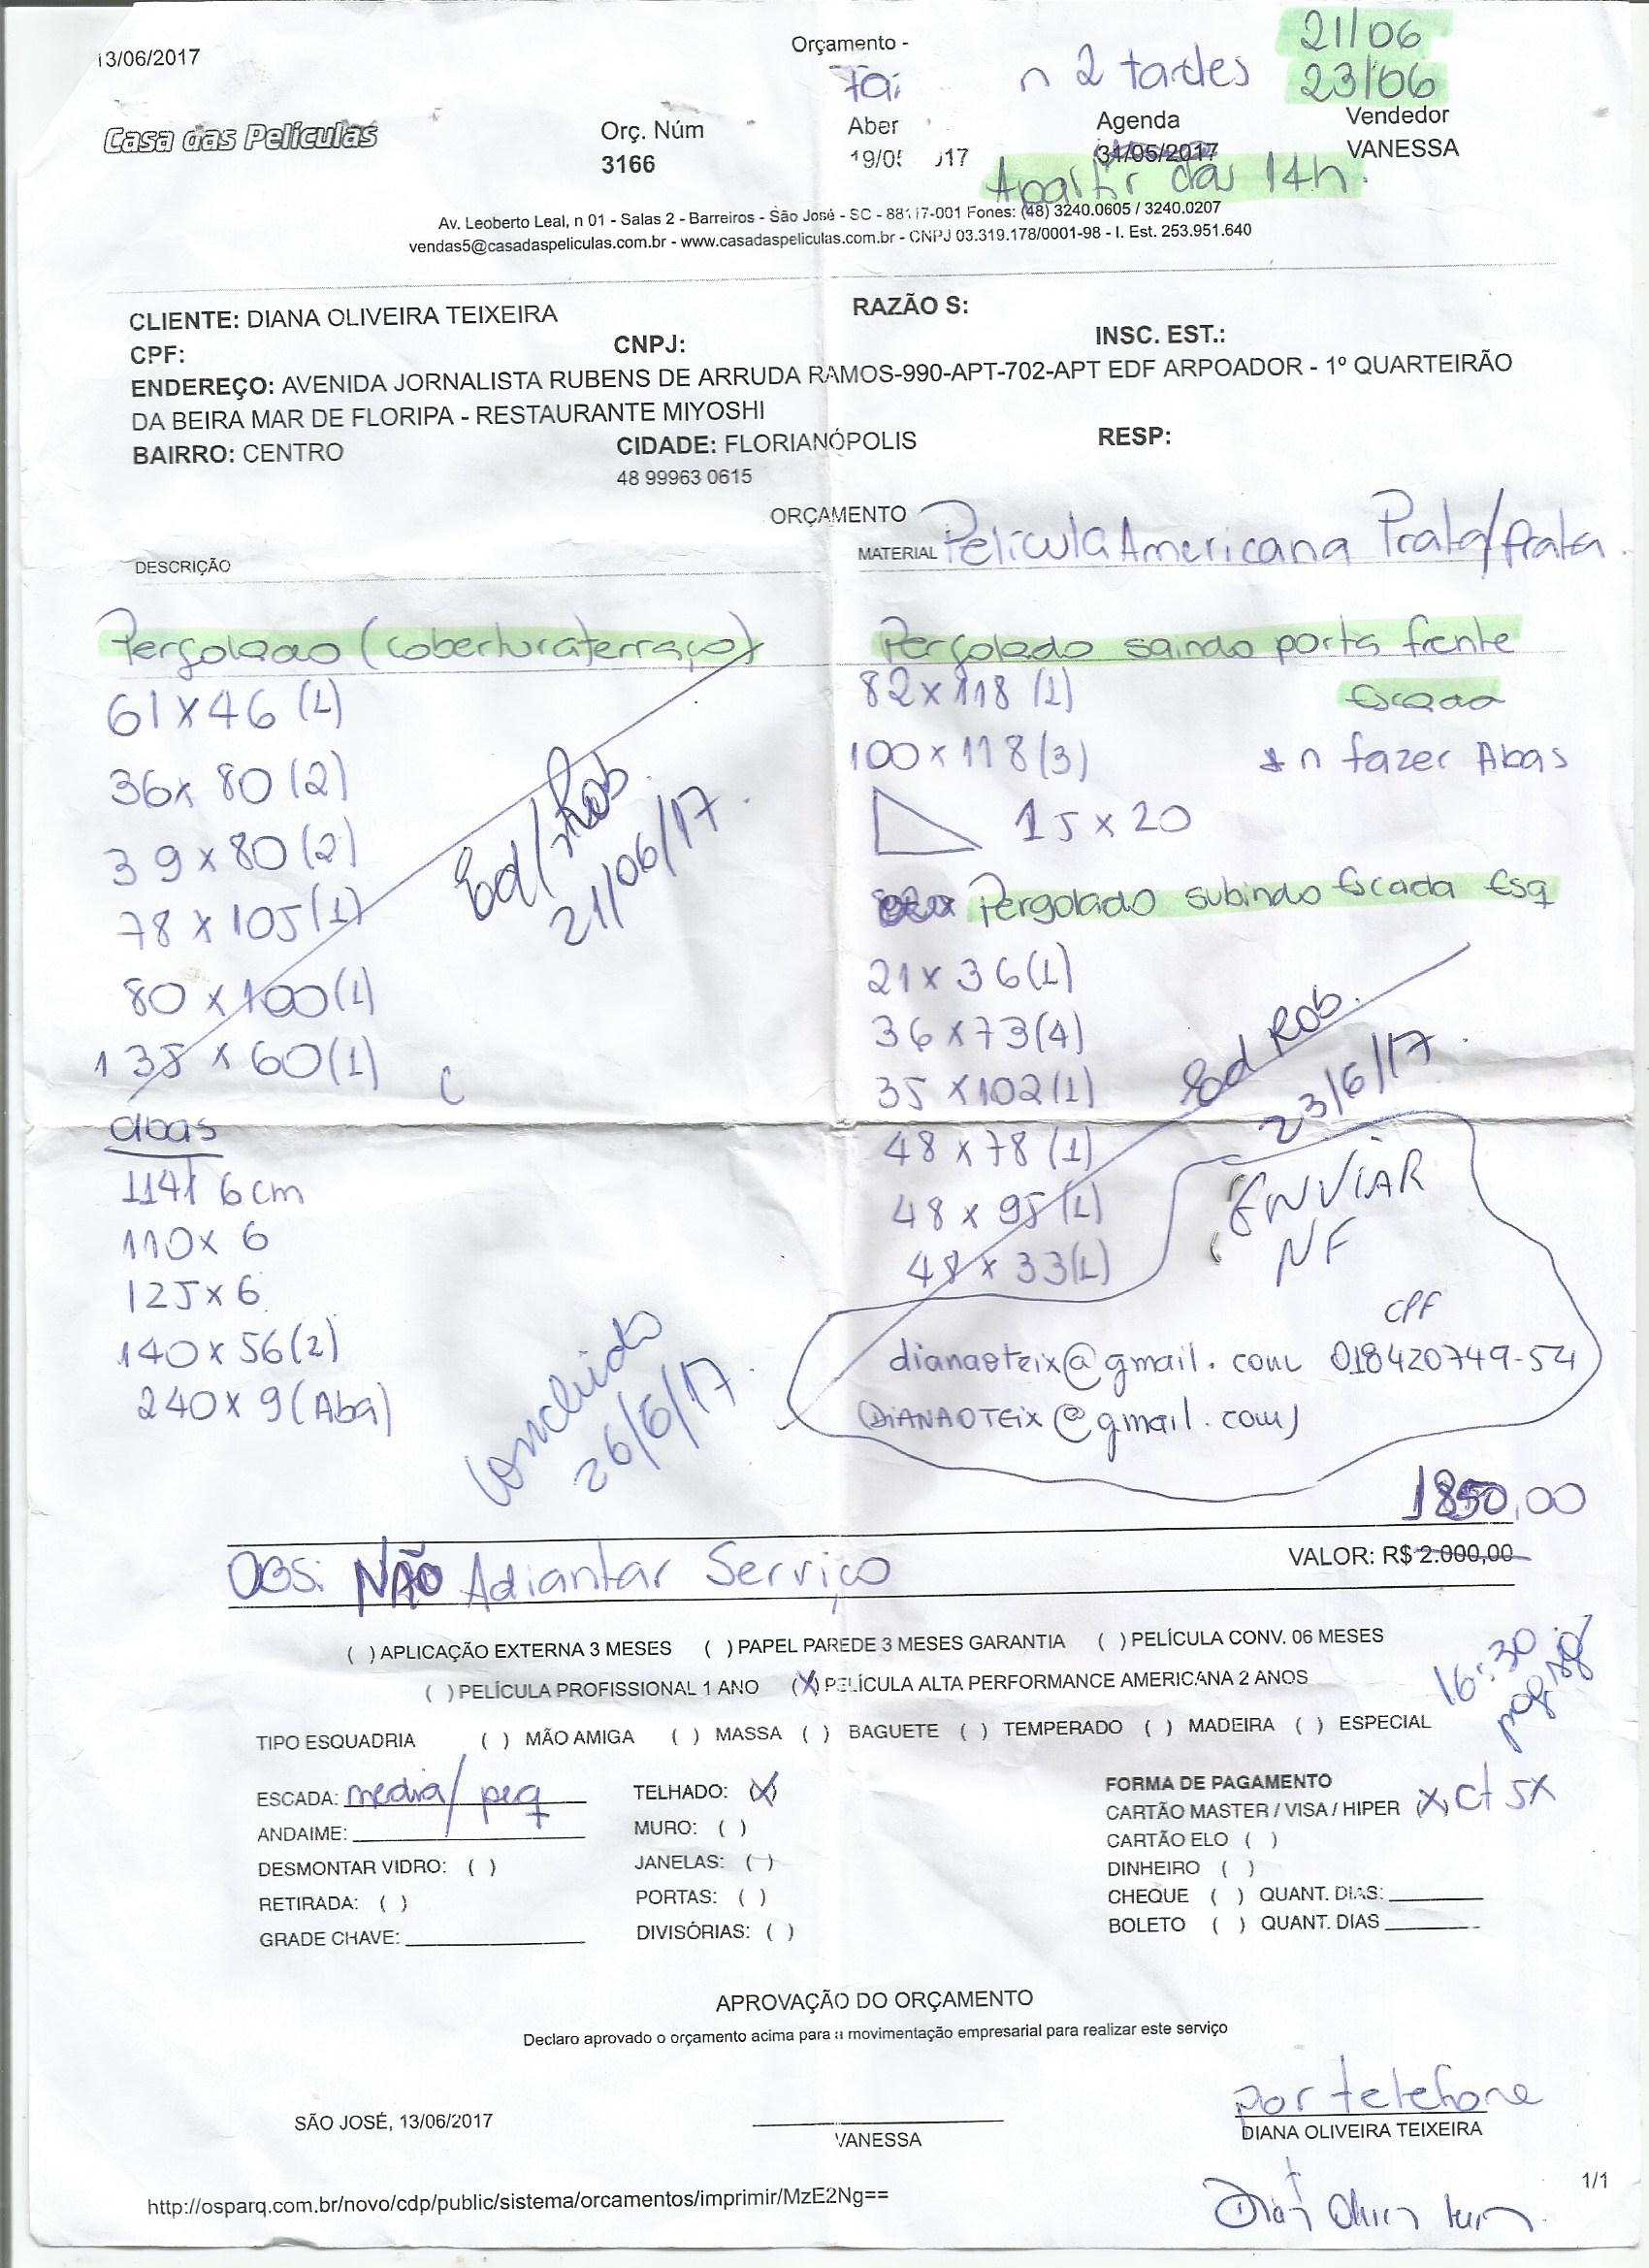 13/06/2017
Orçamento -
n 2 tardes
21/06
23/06
Casa das Películas
Orç. Núm
3166
Aber
19/05 017
Agenda
31/05/2017
Apartir das 14h.
Vendedor
VANESSA
Av. Leoberto Leal, n 01 - Salas 2 - Barreiros - São José - SC - 88117-001 Fones: (48) 3240.0605 / 3240.0207
vendas5@casadaspeliculas.com.br - www.casadaspeliculas.com.br - CNPJ 03.319.178/0001-98 - I. Est. 253.951.640
CLIENTE: DIANA OLIVEIRA TEIXEIRA
RAZÃO S:
CPF:
CNPJ:
INSC. EST.:
ENDEREÇO: AVENIDA JORNALISTA RUBENS DE ARRUDA RAMOS-990-APT-702-APT EDF ARPOADOR - 1º QUARTEIRÃO
DA BEIRA MAR DE FLORIPA - RESTAURANTE MIYOSHI
BAIRRO: CENTRO
CIDADE: FLORIANÓPOLIS
RESP:
48 99963 0615
ORÇAMENTO
DESCRIÇÃO
MATERIAL Película Americana Prata/prata.
Pergolado (cobertura terraço)
61x46 (1)
36x 80 (2)
39x80 (2)
78 x 105 (1)
80 x 100 (1)
138 x 60 (1)
Ed/Rob.
21/06/17
abas
114x 6cm
110x 6
125x6
140x56(2)
240x9 (Aba)
Concluido
26/6/17
Pergolado saindo porta frente
escada
82x118 (1)
100x118 (3)
* n fazer Abas
15x20
Pergolado subindo Escada Esq
21x36 (1)
36x73 (4)
35x102 (1)
48x78 (1)
48x95 (1)
48x33 (1)
Ed Rob.
23/6/17
ENVIAR
NF
CPF
dianaoteix@gmail.com 018420749-54
(DIANAOTEIX@gmail.com)
1850,00
VALOR: R$ 2.000,00
OBS: NÃO Adiantar Serviço
( ) APLICAÇÃO EXTERNA 3 MESES ( ) PAPEL PAREDE 3 MESES GARANTIA ( ) PELÍCULA CONV. 06 MESES
( ) PELÍCULA PROFISSIONAL 1 ANO (X) PELÍCULA ALTA PERFORMANCE AMERICANA 2 ANOS
16:30
TIPO ESQUADRIA ( ) MÃO AMIGA ( ) MASSA ( ) BAGUETE ( ) TEMPERADO ( ) MADEIRA ( ) ESPECIAL
ESCADA: media/ peq
ANDAIME:
DESMONTAR VIDRO: ( )
RETIRADA: ( )
GRADE CHAVE:
TELHADO: (X)
MURO: ( )
JANELAS: ( )
PORTAS: ( )
DIVISÓRIAS: ( )
FORMA DE PAGAMENTO
CARTÃO MASTER / VISA / HIPER (X) Ct 5x
CARTÃO ELO ( )
DINHEIRO ( )
CHEQUE ( ) QUANT. DIAS:
BOLETO ( ) QUANT. DIAS
APROVAÇÃO DO ORÇAMENTO
Declaro aprovado o orçamento acima para a movimentação empresarial para realizar este serviço
SÃO JOSÉ, 13/06/2017
VANESSA
por telefone
DIANA OLIVEIRA TEIXEIRA
http://osparq.com.br/novo/cdp/public/sistema/orcamentos/imprimir/MzE2Ng==
1/1